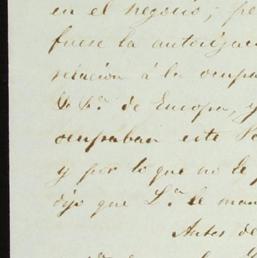 en el negocio; pe
fuese la autorizac
relacion á la ocupa
de Europa, y
ocupaban este
y por lo que no le
dijo que S.ª le man
Antes de